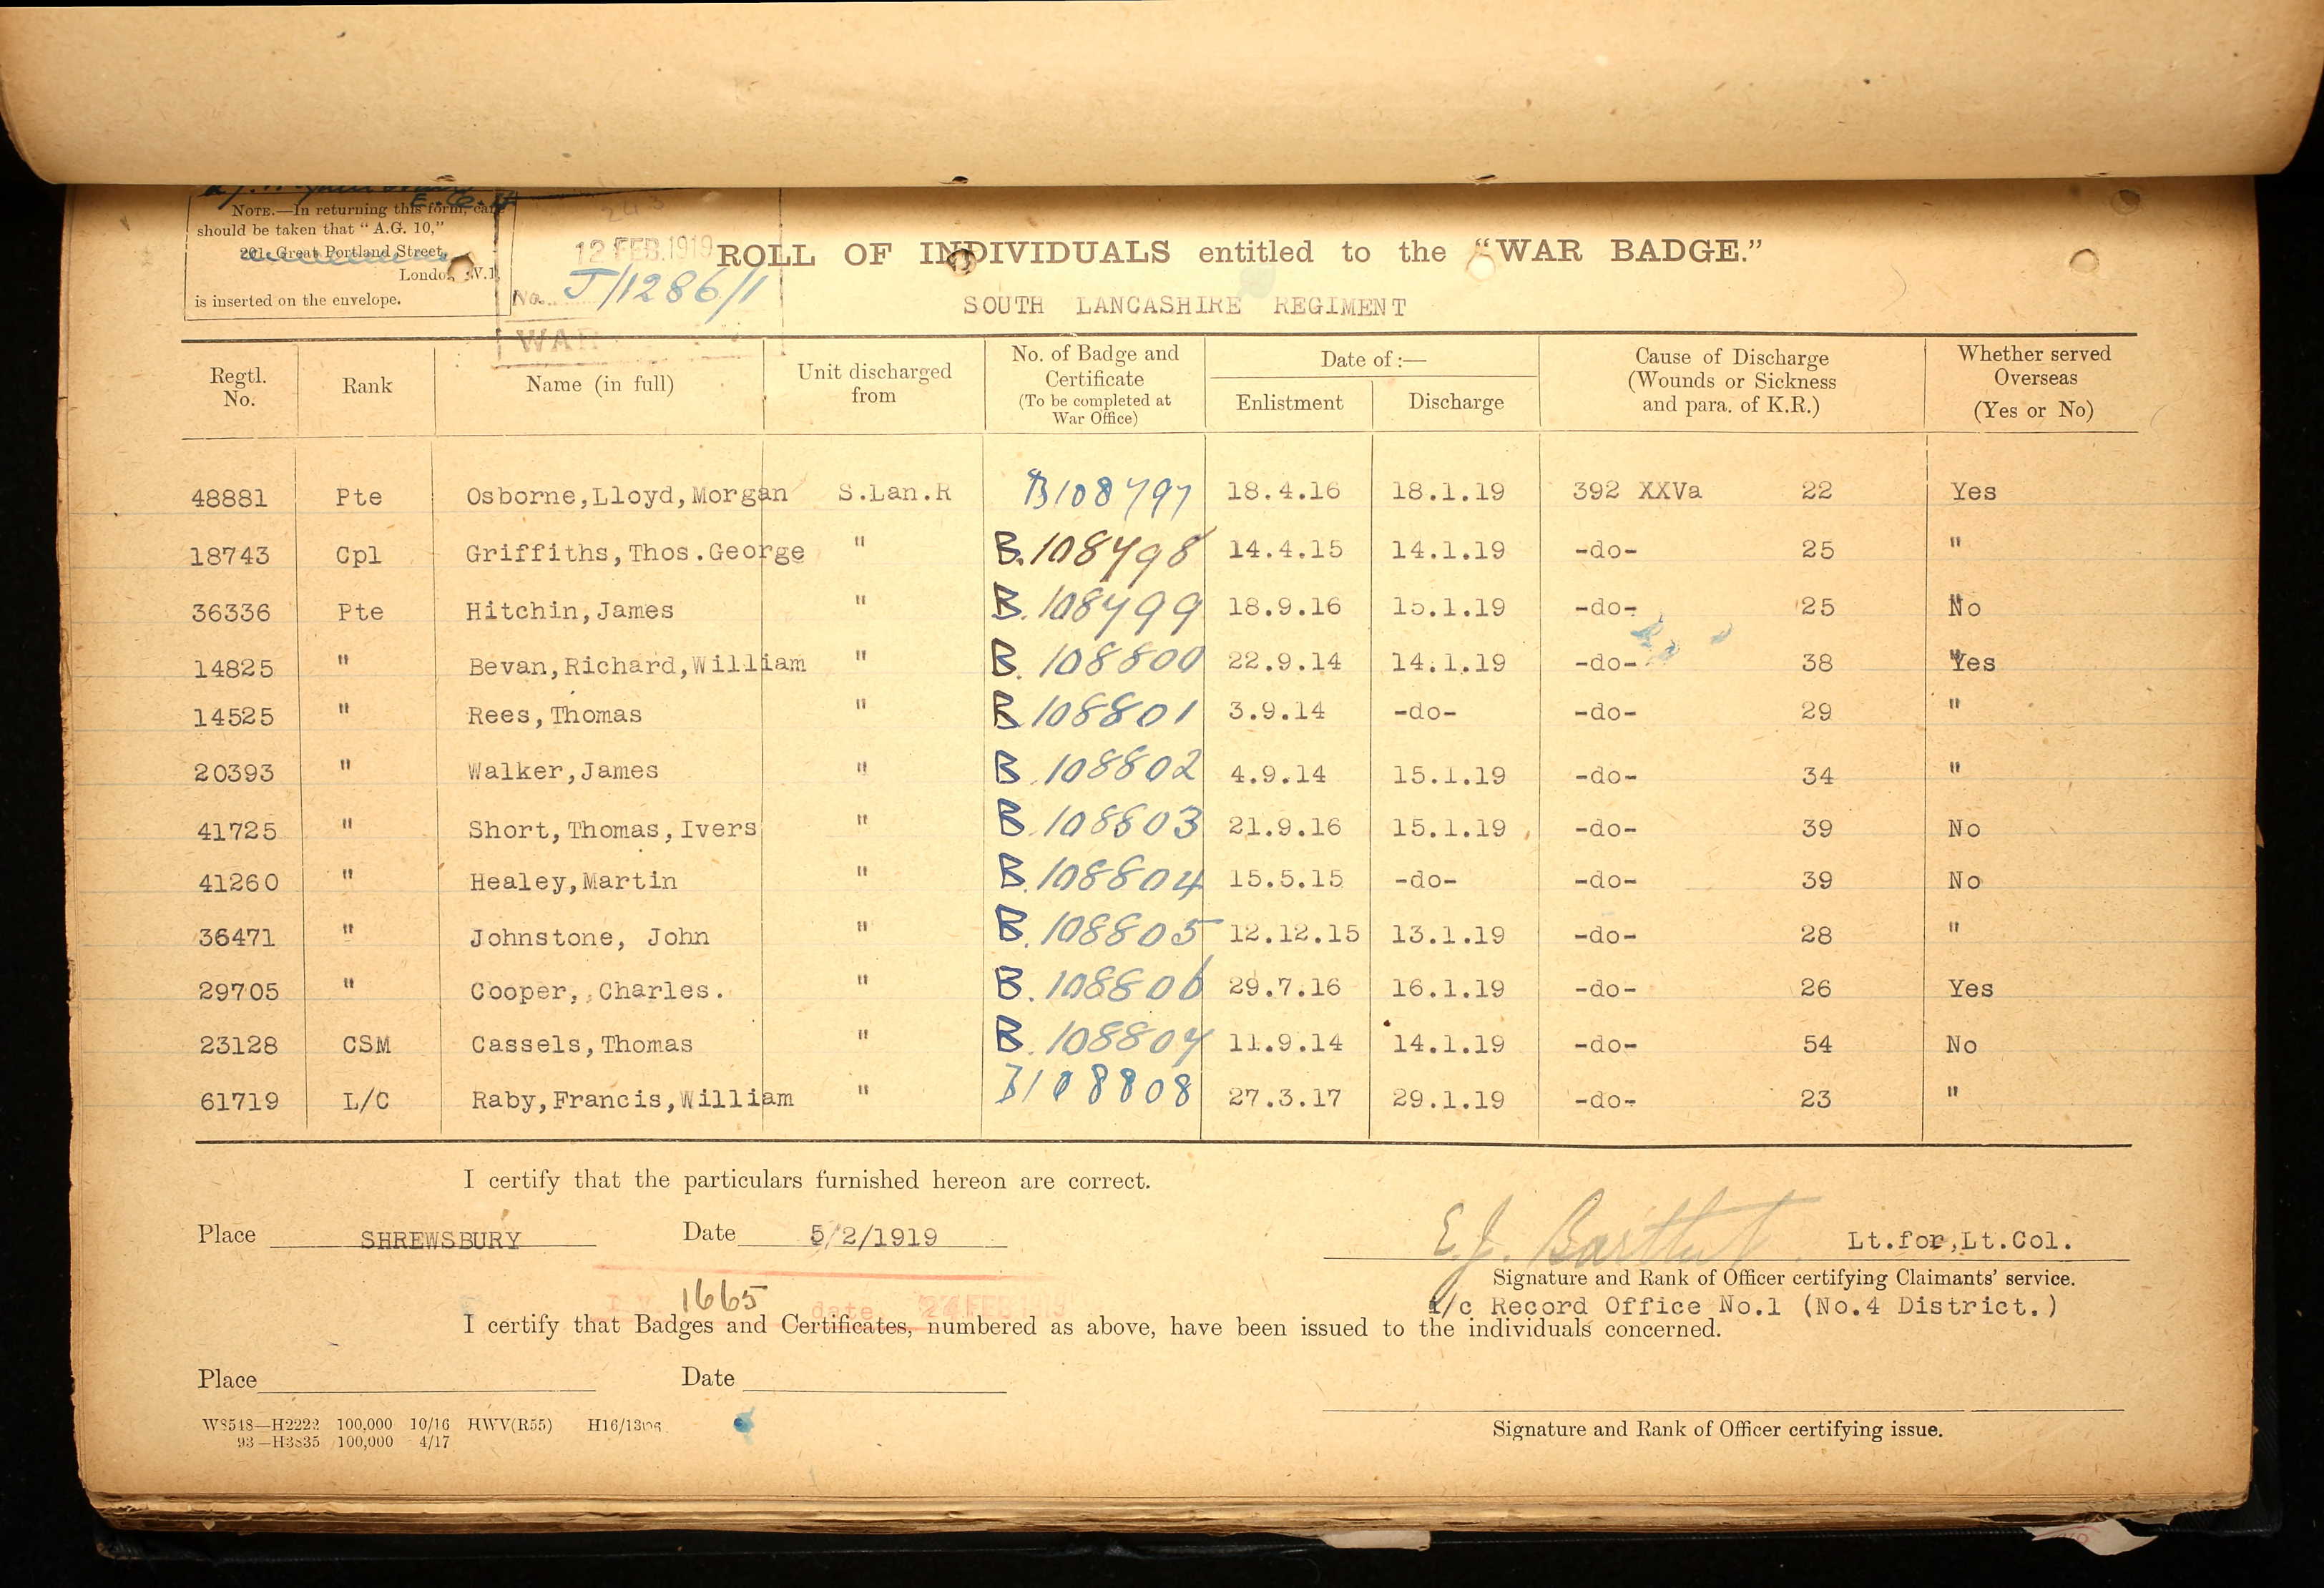 NOTE.—In returning this form, care
should be taken that "A.G. 10,"
201, Great Portland Street,
London, W.1
is inserted on the envelope.
12 FEB.1919
No. J/1286/1
WAR
ROLL OF INDIVIDUALS entitled to the "WAR BADGE."
SOUTH LANCASHIRE REGIMENT
Regtl. No. Rank Name (in full) Unit discharged from No. of Badge and Certificate (To be completed at War Office) Date of:— Enlistment Discharge Cause of Discharge (Wounds or Sickness and para. of K.R.) Whether served Overseas (Yes or No)
48881 Pte Osborne,Lloyd,Morgan S.Lan.R B108797 18.4.16 18.1.19 392 XXVa 22 Yes
18743 Cpl Griffiths,Thos.George " B.108798 14.4.15 14.1.19 -do- 25 "
36336 Pte Hitchin,James " B.108799 18.9.16 15.1.19 -do- 25 No
14825 " Bevan,Richard,William " B.108800 22.9.14 14.1.19 -do- 38 Yes
14525 " Rees,Thomas " B108801 3.9.14 -do- -do- 29 "
20393 " Walker,James " B.108802 4.9.14 15.1.19 -do- 34 "
41725 " Short,Thomas,Ivers " B.108803 21.9.16 15.1.19 -do- 39 No
41260 " Healey,Martin " B.108804 15.5.15 -do- -do- 39 No
36471 " Johnstone, John " B.108805 12.12.15 13.1.19 -do- 28 "
29705 " Cooper, Charles. " B.108806 29.7.16 16.1.19 -do- 26 Yes
23128 CSM Cassels,Thomas " B.108807 11.9.14 14.1.19 -do- 54 No
61719 L/C Raby,Francis,William " B108808 27.3.17 29.1.19 -do- 23 "
I certify that the particulars furnished hereon are correct.
Place SHREWSBURY Date 5/2/1919 Lt.for,Lt.Col.
Signature and Rank of Officer certifying Claimants' service.
I/c Record Office No.1 (No.4 District.)
1665 date FEB 1919
I certify that Badges and Certificates, numbered as above, have been issued to the individuals concerned.
Place Date
Signature and Rank of Officer certifying issue.
W8548—H2222 100,000 10/16 HWV(R55)
93—H3835 100,000 4/17